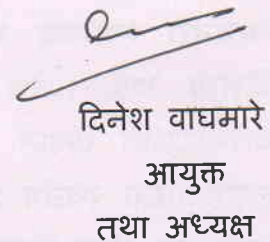 दिनेश वाघमारे
आयुक्त
तथा अध्यक्ष